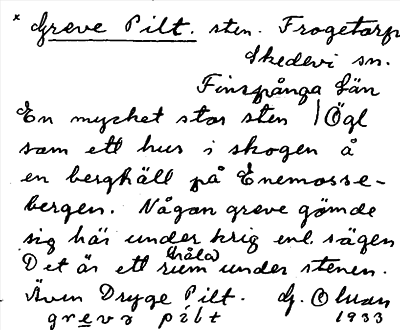 × Greve Pilt. sten. Frogetorp
Skedevi sn.
Finspånga län
En mycket stor sten / Ögl
som ett hus i skogen å
en berghäll på Enemosse-
bergen. Någon greve gömde
sig här under krig enl. sägen
Det är ett rum (håla) under stenen.
Även Dryge Pilt. G.
grevə pilt 1933